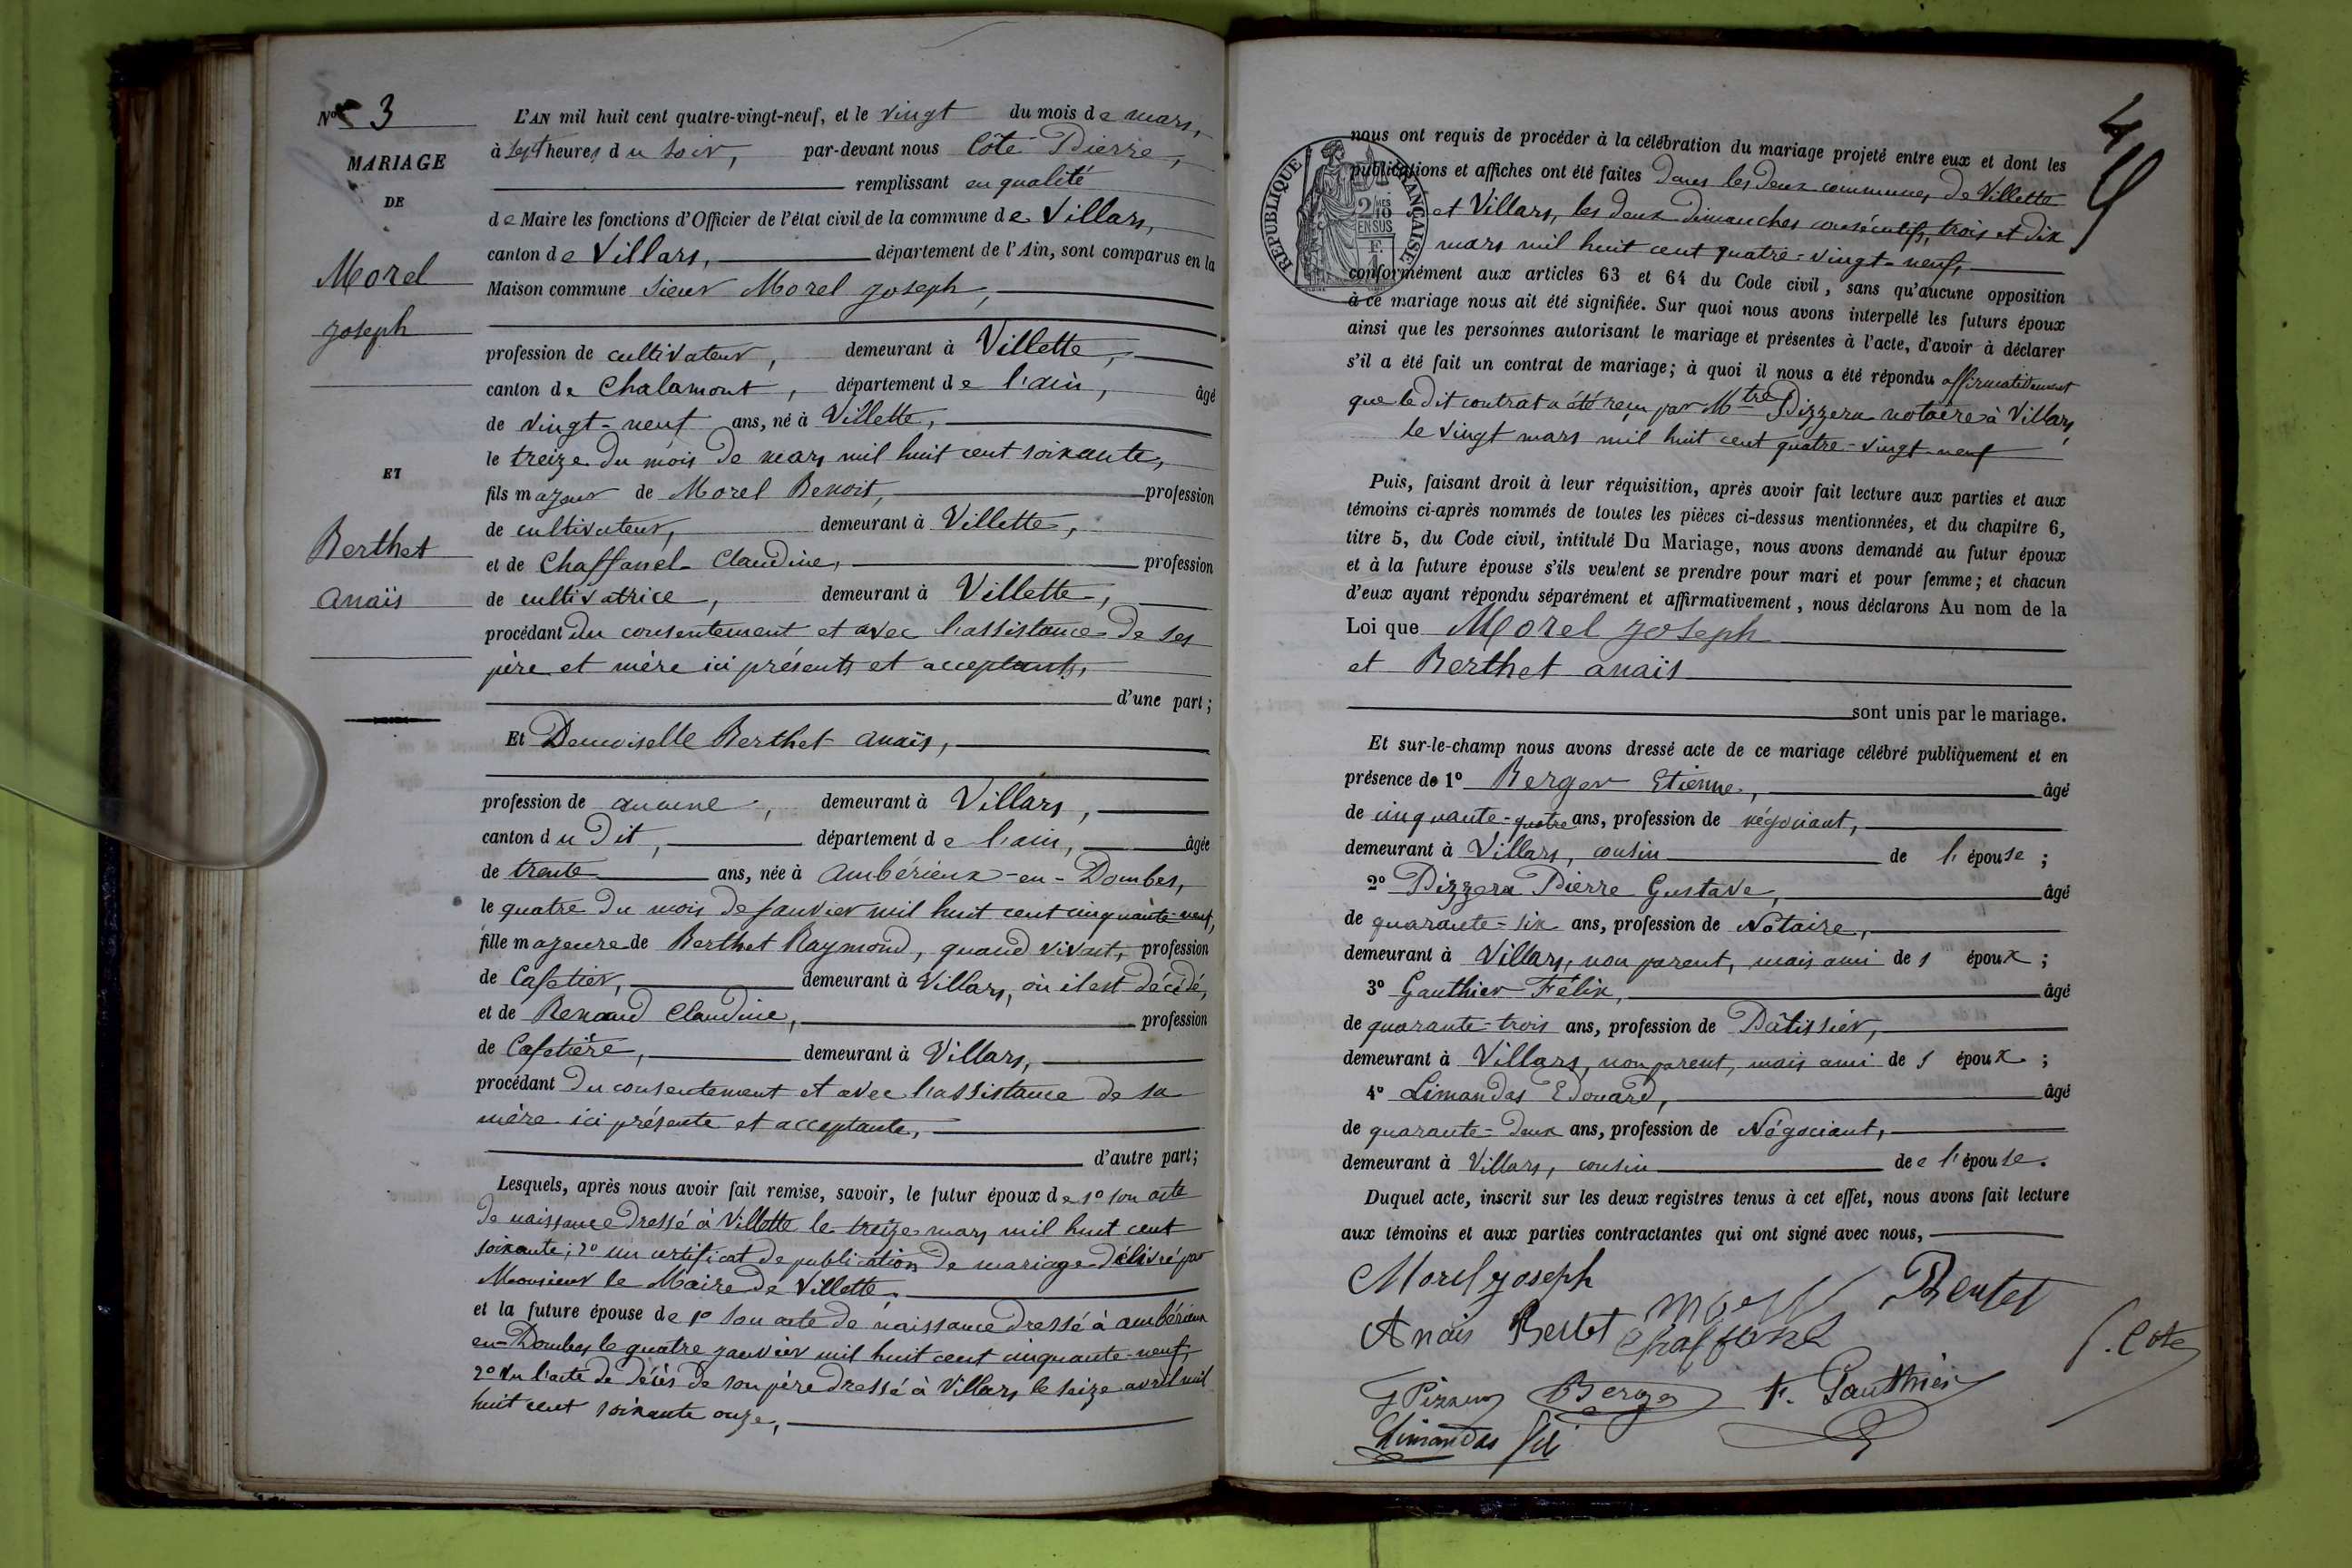 No 3
MARIAGE
DE
Morel
Joseph
ET
Berthet
Anaïs
L'AN mil huit cent quatre-vingt-neuf, et le vingt du mois de mars,
à sept heures du soir, par-devant nous Côte Pierre,
remplissant en qualité
de Maire les fonctions d'Officier de l'état civil de la commune de Villars,
canton de Villars, département de l'Ain, sont comparus en la
Maison commune Sieur Morel Joseph,
profession de cultivateur, demeurant à Villette,
canton de Chalamont, département de l'ain, âgé
de vingt-neuf ans, né à Villette,
le treize du mois de mars mil huit cent soixante,
fils majeur de Morel Benoit, profession
de cultivateur, demeurant à Villette,
et de Chaffanel Claudine, profession
de cultivatrice, demeurant à Villette,
procédant du consentement et avec l'assistance de ses
père et mère ici présents et acceptants,
d'une part;
Et Demoiselle Berthet Anaïs,
profession de aucune, demeurant à Villars,
canton du dit, département de l'ain, âgée
de trente ans, née à Ambérieux-en-Dombes,
le quatre du mois de Janvier mil huit cent cinquante-neuf,
fille majeure de Berthet Raymond, quand vivait, profession
de Cafetier, demeurant à Villars, où il est décédé,
et de Renaud Claudine, profession
de Cafetière, demeurant à Villars,
procédant du consentement et avec l'assistance de sa
mère ici présente et acceptante,
d'autre part;
Lesquels, après nous avoir fait remise, savoir, le futur époux de 1º son acte
de naissance dressé à Villette le treize mars mil huit cent
soixante; 2º un certificat de publication de mariage délivré par
Monsieur le Maire de Villette,
et la future épouse de 1º son acte de naissance dressé à Ambérieux
en-Dombes le quatre janvier mil huit cent cinquante-neuf,
2º de l'acte de décès de son père dressé à Villars le seize avril mil
huit cent soixante onze,
49
RÉPUBLIQUE FRANÇAISE
2/10 EN SUS
nous ont requis de procéder à la célébration du mariage projeté entre eux et dont les
publications et affiches ont été faites dans les deux communes de Villette
et Villars, les deux dimanches consécutifs, trois et dix
mars mil huit cent quatre-vingt-neuf,
conformément aux articles 63 et 64 du Code civil, sans qu'aucune opposition
à ce mariage nous ait été signifiée. Sur quoi nous avons interpellé les futurs époux
ainsi que les personnes autorisant le mariage et présentes à l'acte, d'avoir à déclarer
s'il a été fait un contrat de mariage; à quoi il nous a été répondu affirmativement
que le dit contrat a été reçu par Mtre Pizzera notaire à Villars,
le vingt mars mil huit cent quatre-vingt-neuf
Puis, faisant droit à leur réquisition, après avoir fait lecture aux parties et aux
témoins ci-après nommés de toutes les pièces ci-dessus mentionnées, et du chapitre 6,
titre 5, du Code civil, intitulé Du Mariage, nous avons demandé au futur époux
et à la future épouse s'ils veulent se prendre pour mari et pour femme; et chacun
d'eux ayant répondu séparément et affirmativement, nous déclarons Au nom de la
Loi que Morel Joseph
et Berthet Anaïs
sont unis par le mariage.
Et sur-le-champ nous avons dressé acte de ce mariage célébré publiquement et en
présence de 1º Berger Etienne, âgé
de cinquante-quatre ans, profession de négociant,
demeurant à Villars, cousin de l'épouse;
2º Pizzera Pierre Gustave, âgé
de quarante-six ans, profession de Notaire,
demeurant à Villars, non parent, mais ami des époux;
3º Gauthier Félix, âgé
de quarante-trois ans, profession de Pâtissier,
demeurant à Villars, non parent, mais ami des époux;
4º Limandas Edouard, âgé
de quarante-deux ans, profession de Négociant,
demeurant à Villars, cousin de l'épouse.
Duquel acte, inscrit sur les deux registres tenus à cet effet, nous avons fait lecture
aux témoins et aux parties contractantes qui ont signé avec nous,
Morel Joseph
Anaïs Bertet
Berger F. Gauthier
Limandas
Cote